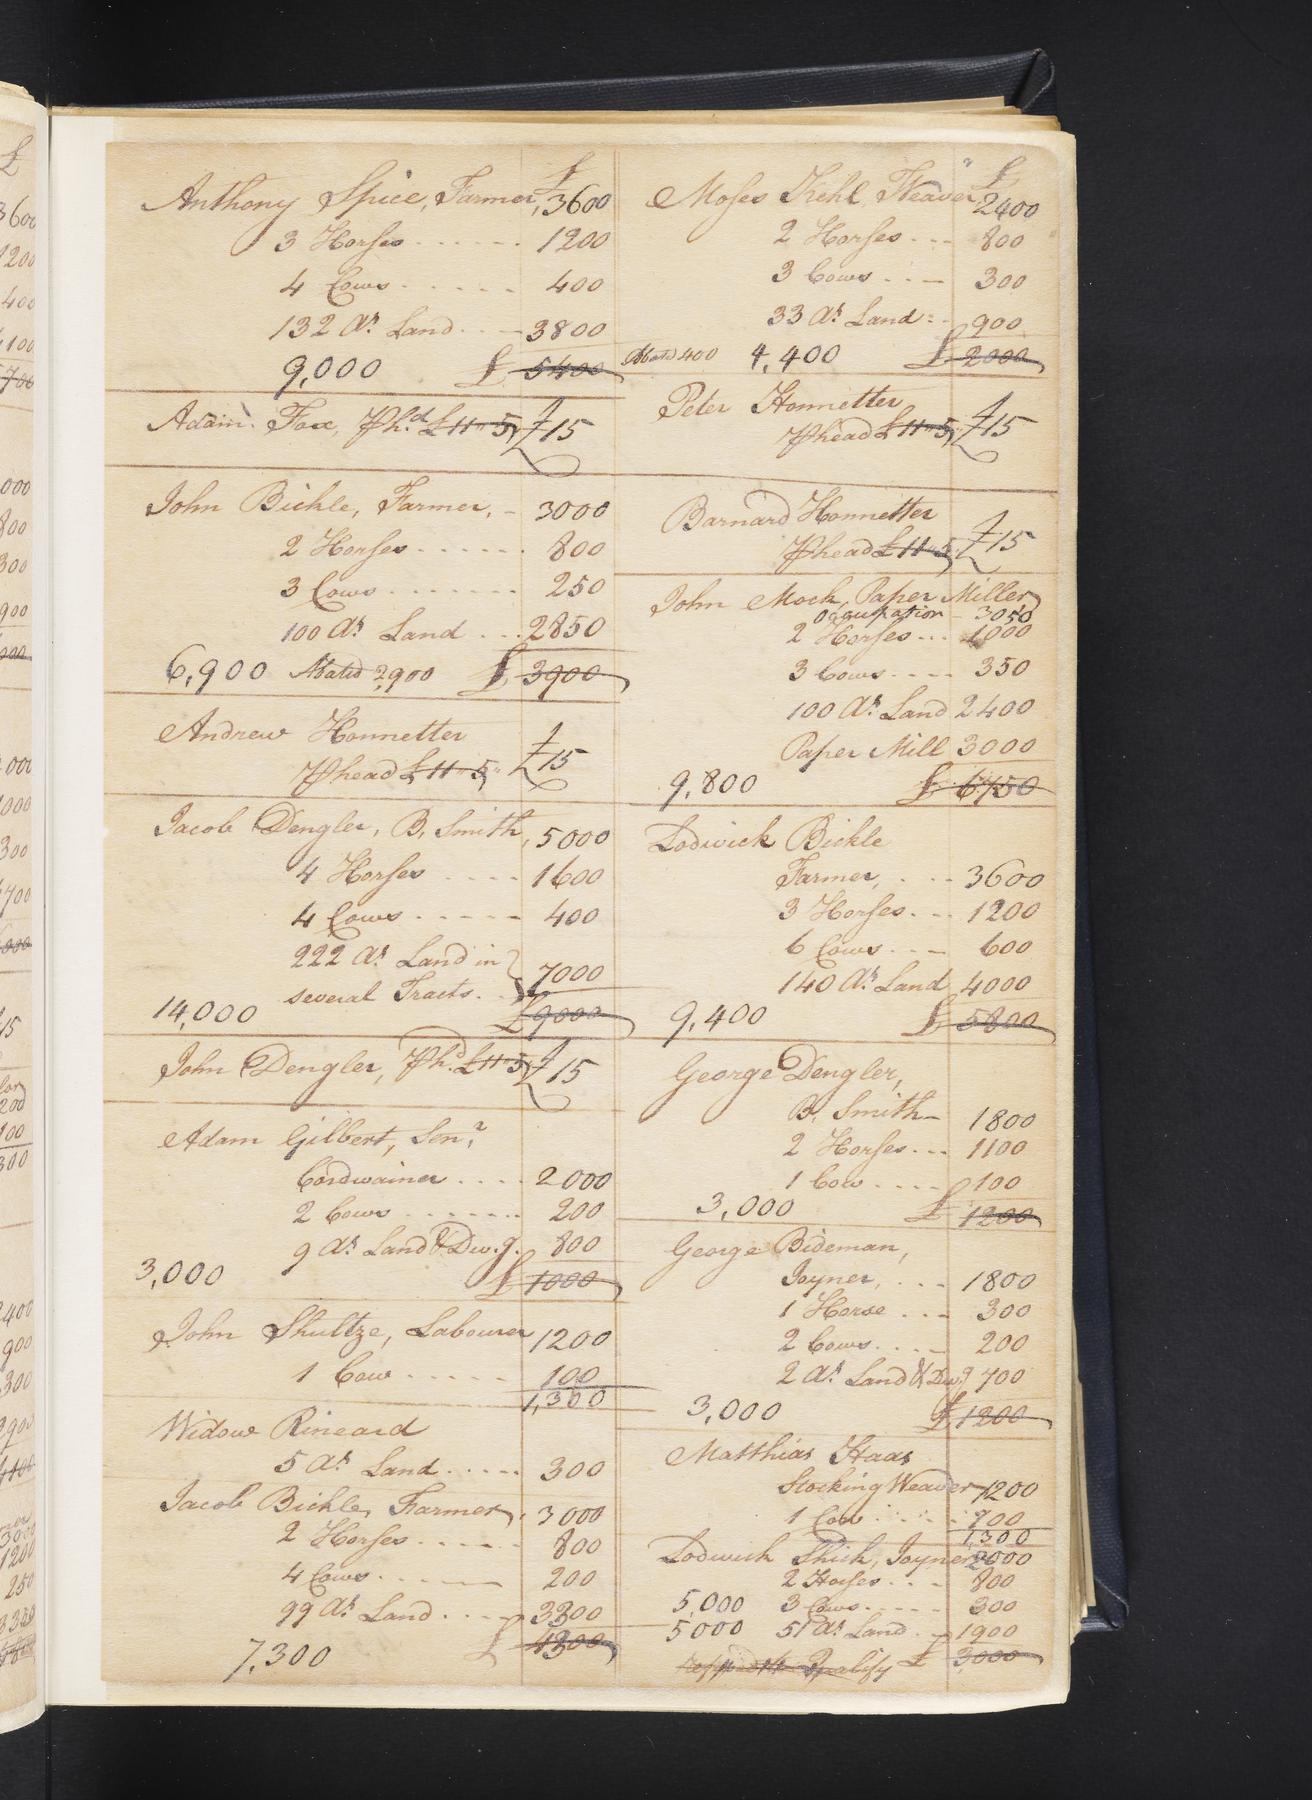 £
Anthony Spice, Farmer, 3600
3 Horses 1200
4 Cows 400
132 As Land 3800
9,000 £ 5400
Adam Fox, Phd £11"5 £15
John Bickle, Farmer, 3000
2 Horses 800
3 Cows 250
100 As Land 2850
6,900 Abated 2,900 £ 3900
Andrew Honnetter £
Phead £11"5" 15
Jacob Dengler, B. Smith, 5000
4 Horses 1600
4 Cows 400
222 As Land in
several Tracts 7000
14,000 £9000
John Dengler, Phd £11"5 £15
Adam Gilbert, Senr
Cordwainer 2000
2 Cows 200
9 As Land & Dwg. 800
3,000 £ 1000
John Shultze, Labourer 1200
1 Cow 100
1,300
Widow Rineard
5 As Land 300
Jacob Bickle, Farmer, 3000
2 Horses 800
4 Cows 200
99 As Land 3300
7,300 £ 4300
£
Moses Kehl, Weaver 2400
2 Horses 800
3 Cows 300
33 As Land 900
Abated 400 4,400 £ 2000
Peter Honnetter
Phead £11"5 £15
Barnard Honnetter
Phead £11"5 £15
John Mock, Paper Miller
occupation 3050
2 Horses 1000
3 Cows 350
100 As Land 2400
Paper Mill 3000
9,800 £ 6750
Lodwick Bickle
Farmer, 3600
3 Horses 1200
6 Cows 600
140 As Land 4000
9,400 £ 5800
George Dengler,
B. Smith 1800
2 Horses 1100
1 Cow 100
3,000 £ 1200
George Bideman,
Joyner, 1800
1 Horse 300
2 Cows 200
2 As Land & Dwg 700
3,000 £ 1200
Matthias Haas
Stocking Weaver 1200
1 Cow 100
1,300
Lodwick Shick, Joyner 2000
2 Horses 800
5,000 3 Cows 300
5000 51 As Land 1900
Qualify £ 3000